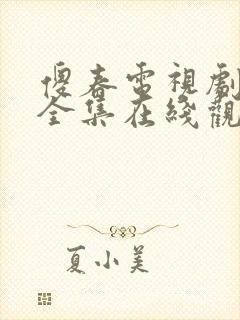 傻春電視劇
全集在綫觀
夏小美